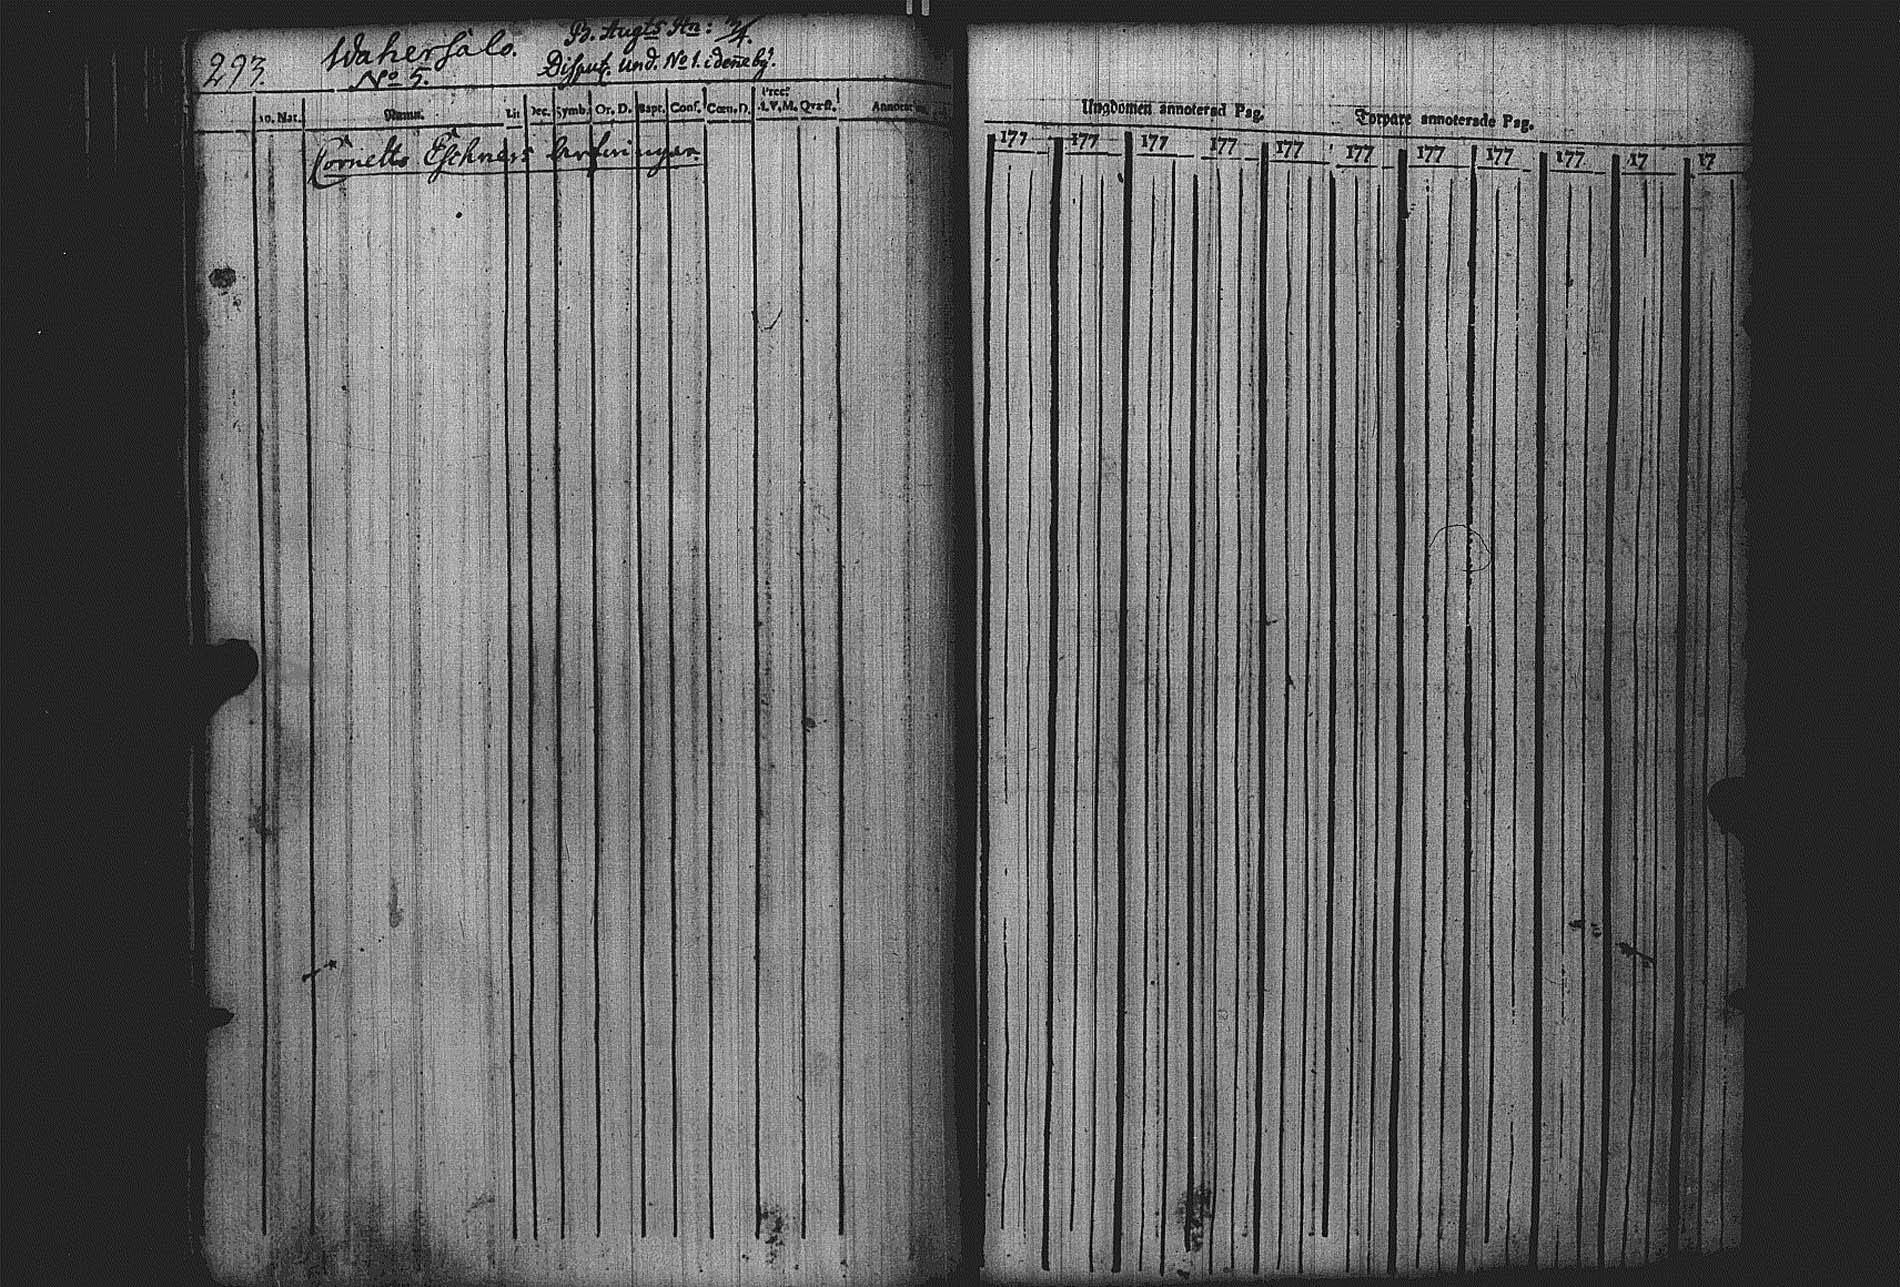 293.
Wahersalo.
No 5.
B. Augts Hn: 3/4.
Disput. und. No 1. i denne by.
Nat. Namn. Lit Dec. Symb. Or. D. Bapt. Conf. Cœn. D. Prec: A.V.M. Qvæst.
Cornetts Eschners
Ungdomen annoterad Pag. Torpare annoterade Pag.
177 177 177 177 177 177 177 177 177 17 17